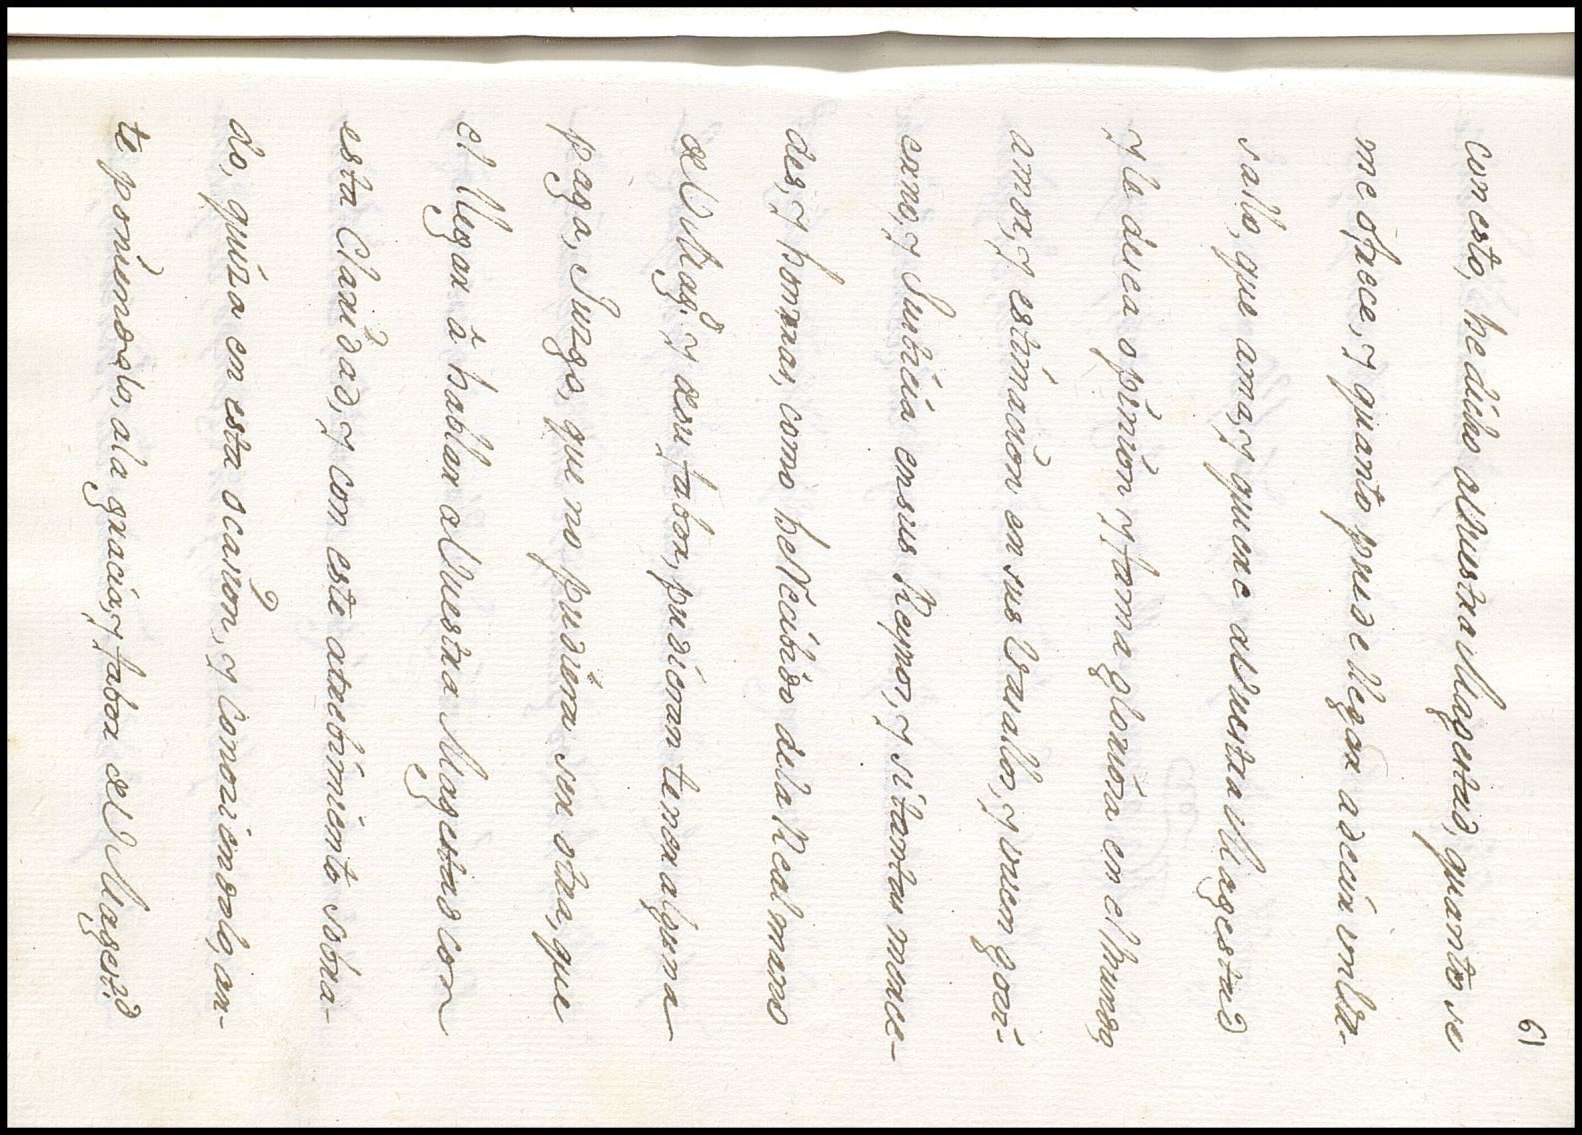 61
con esto, he dicho a Vuestra Magestad, quanto se
me ofrece, y quanto puede llegar a decir un Va-
sallo, que ama, y quiere a Vuestra Magestad
y le desea opinion, y fama gloriosa en el mundo,
amor, y estimacion en sus Vasallos, y buen govi-
erno, y Justicia en sus Reynos, y si tantas merce-
des, y honrras, como he Recibido de la Real mano
de V. Mag.d y de su fabor, pudieran tener alguna
paga, Juzgo, que no pudiera ser otra, que
el llegar â hablar a Vuestra Magestad con
esta Claridad, y con este atrebimiento sobra-
do, quizá en esta ocasion, y conociendolo, an-
te poniendolo, a la gracia, y fabor de V. Magest.d